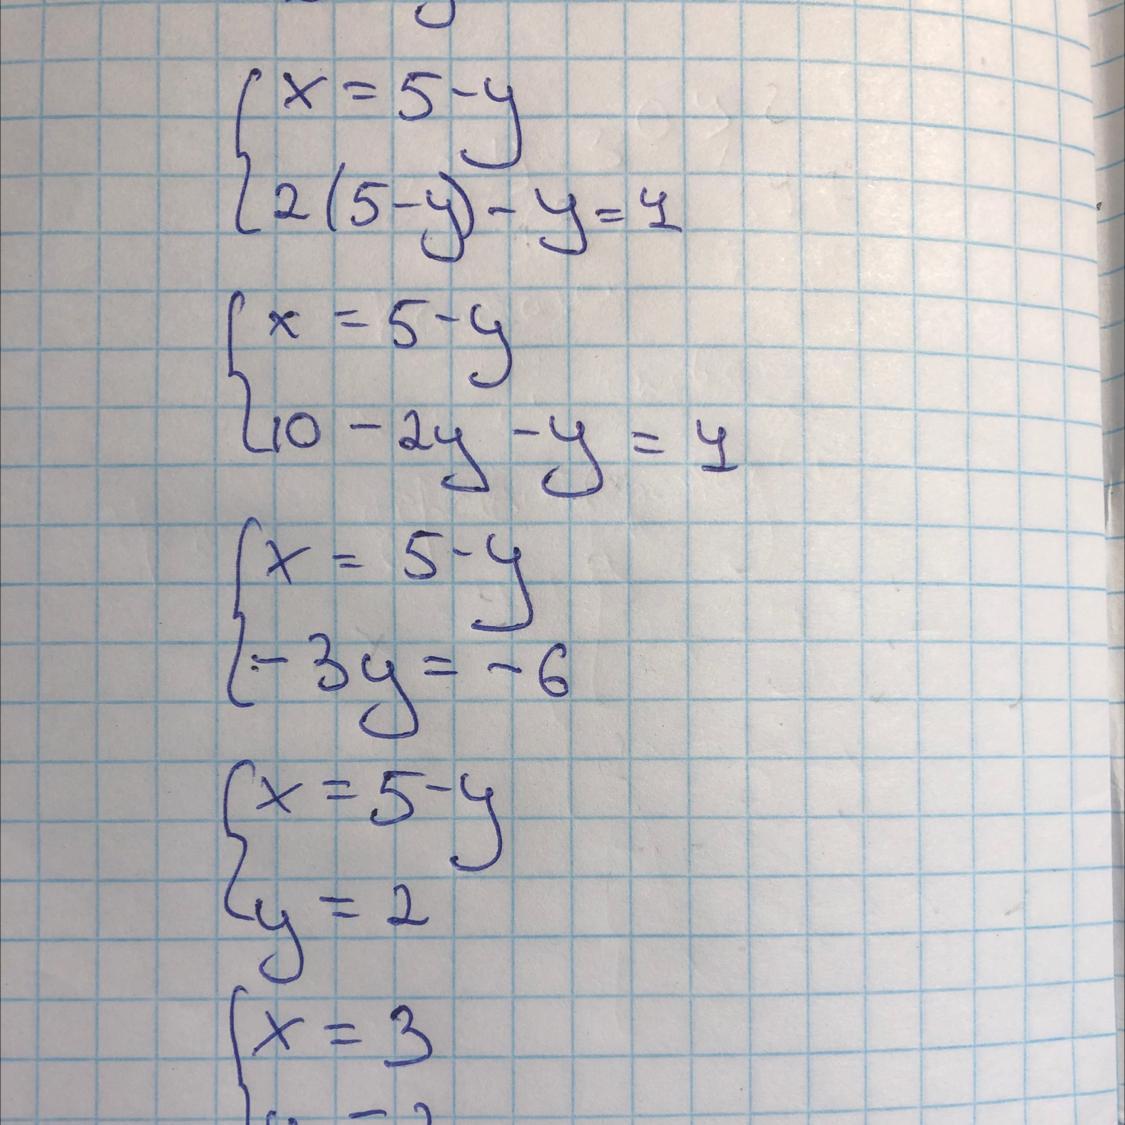 x = 5 - y
2(5 - y) - y = 4
x = 5 - y
10 - 2y - y = 4
x = 5 - y
- 3y = - 6
x = 5 - y
y = 2
x = 3